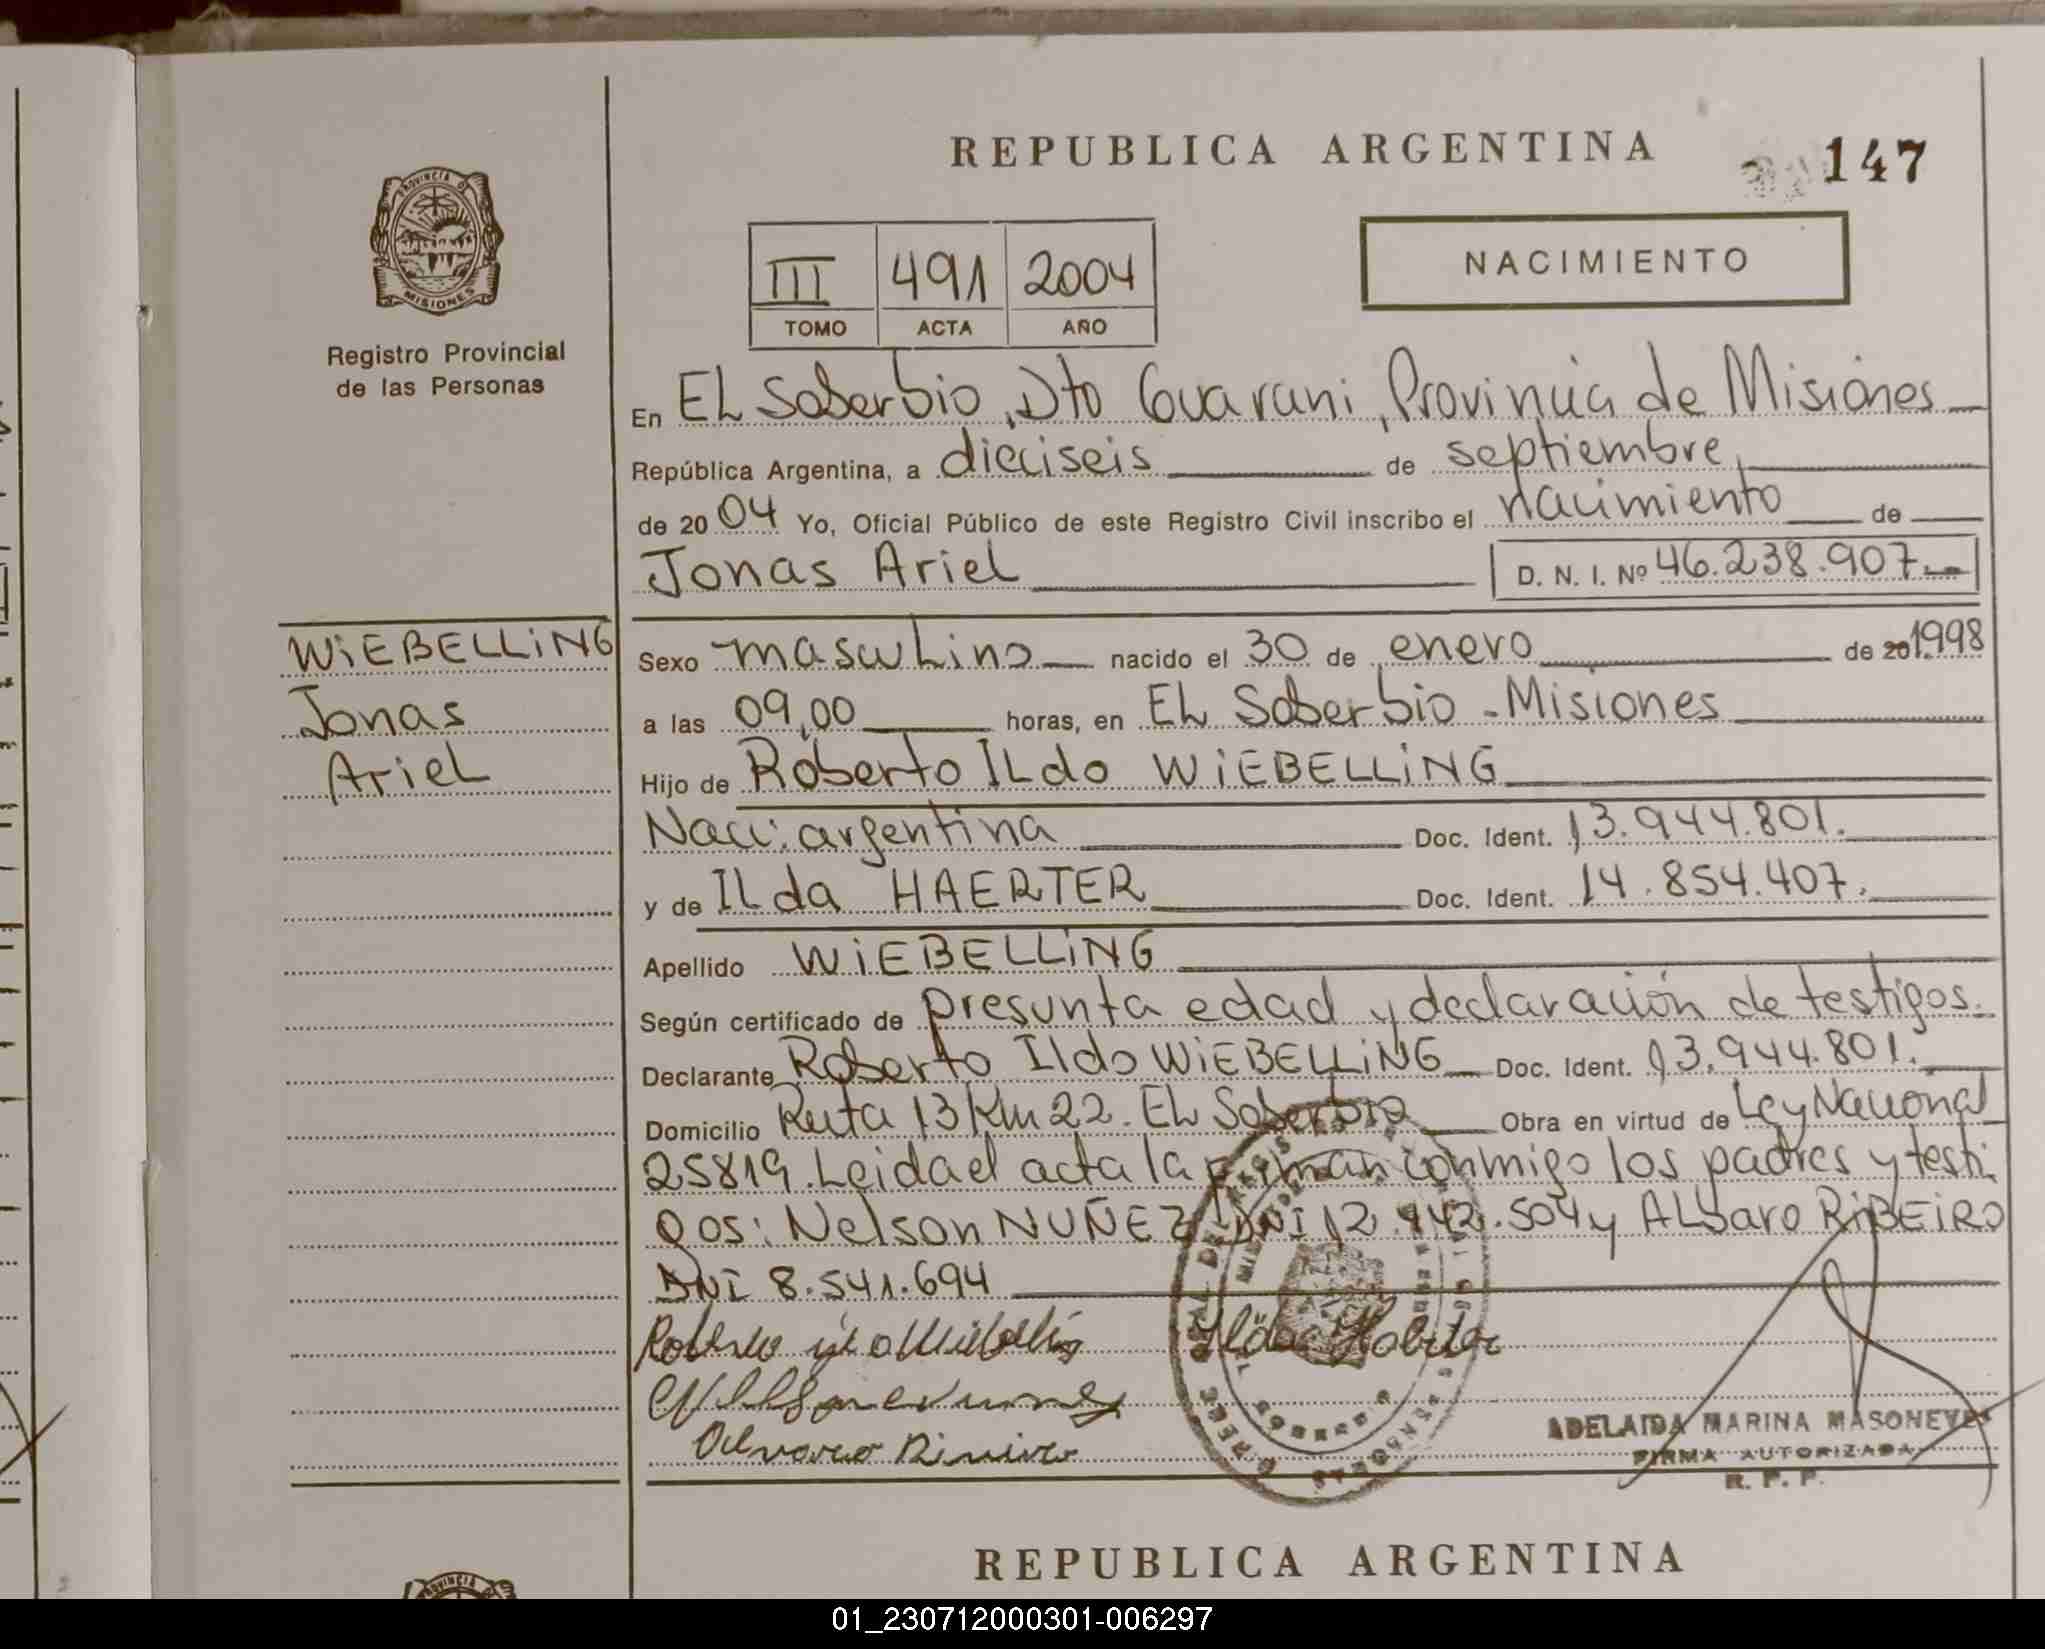 REPUBLICA ARGENTINA
147
PROVINCIA DE
MISIONES
Registro Provincial
de las Personas
III 491 2004
TOMO ACTA AÑO
NACIMIENTO
En EL Soberbio, Dto Guarani, Provincia de Misiones
República Argentina, a dieciseis de septiembre,
de 2004 Yo, Oficial Público de este Registro Civil inscribo el nacimiento de
Jonas Ariel D. N. I. Nº 46.238.907.-
WiEBELLiNG
Jonas
Ariel
Sexo masculino nacido el 30 de enero de 201998
a las 09,00 horas, en El Soberbio - Misiones
Hijo de Roberto ILdo WiEBELLiNG
Naci: argentina Doc. Ident. 13.944.801.
y de ILda HAERTER Doc. Ident. 14.854.407.
Apellido WiEBELLiNG
Según certificado de presunta edad y declaración de testigos.
Declarante Roberto Ildo WiEBELLiNG Doc. Ident. 13.944.801.
Domicilio Ruta 13 Km 22. EL Soberbio Obra en virtud de Ley Nacional
25819. Leida el acta la firman conmigo los padres y testi
gos: Nelson NUÑEZ DNI 12.942.504 y ALbaro RiBEiRO
DNI 8.541.694
ADELAIDA MARINA MASONEVES
FIRMA AUTORIZADA
R. P. P.
REPUBLICA ARGENTINA
01_230712000301-006297